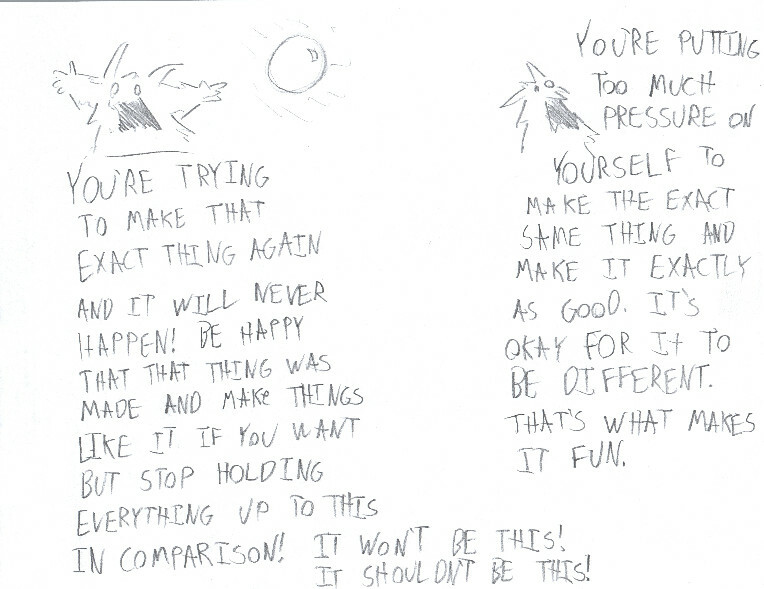 YOU'RE TRYING
TO MAKE THAT
EXACT THING AGAIN
AND IT WILL NEVER
HAPPEN! BE HAPPY
THAT THAT THING WAS
MADE AND MAKE THINGS
LIKE IT IF YOU WANT
BUT STOP HOLDING
EVERYTHING UP TO THIS
IN COMPARISON! IT WON'T BE THIS!
IT SHOULDN'T BE THIS!
YOU'RE PUTTING
TOO MUCH
PRESSURE ON
YOURSELF TO
MAKE THE EXACT
SAME THING AND
MAKE IT EXACTLY
AS GOOD. IT'S
OKAY FOR It TO
BE DIFFERENT.
THAT'S WHAT MAKES
IT FUN.